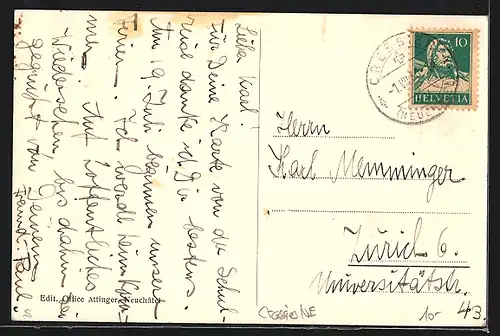 Lieber Karl!
Für Deine Karte von der Schul-
reise danke ich Dir bestens.
Am 19. Juli beginnen unsere
Ferien. Ich werde heim kom-
men. Auf hoffentliches
Wiedersehen bis dahin sei
gegrüsst von Deinem
Freund Paul.
Edit. Office Attinger, Neuchâtel
10
HELVETIA
CRESSIER
(NEUCH
Herrn
Karl Memminger
Zürich 6.
Universitätstr. 43.
Cressier NE
10-